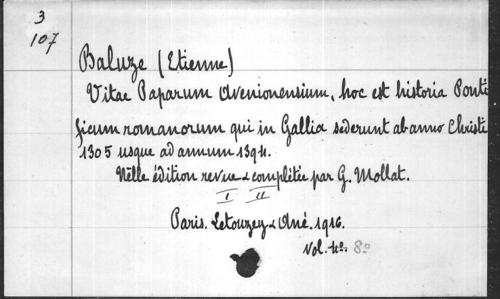 3
107
Baluze (Etienne)
Vitae Paparum Avenionensium, hoc est historia Ponti
ficum romanorum qui in Gallia sederunt ab anno Christi
1305 usque ad annum 1394.
Nelle édition revue & complétée par G. Mollat.
I II
Paris. Letouzey & Ané. 1916.
Vol. 4º. 8º